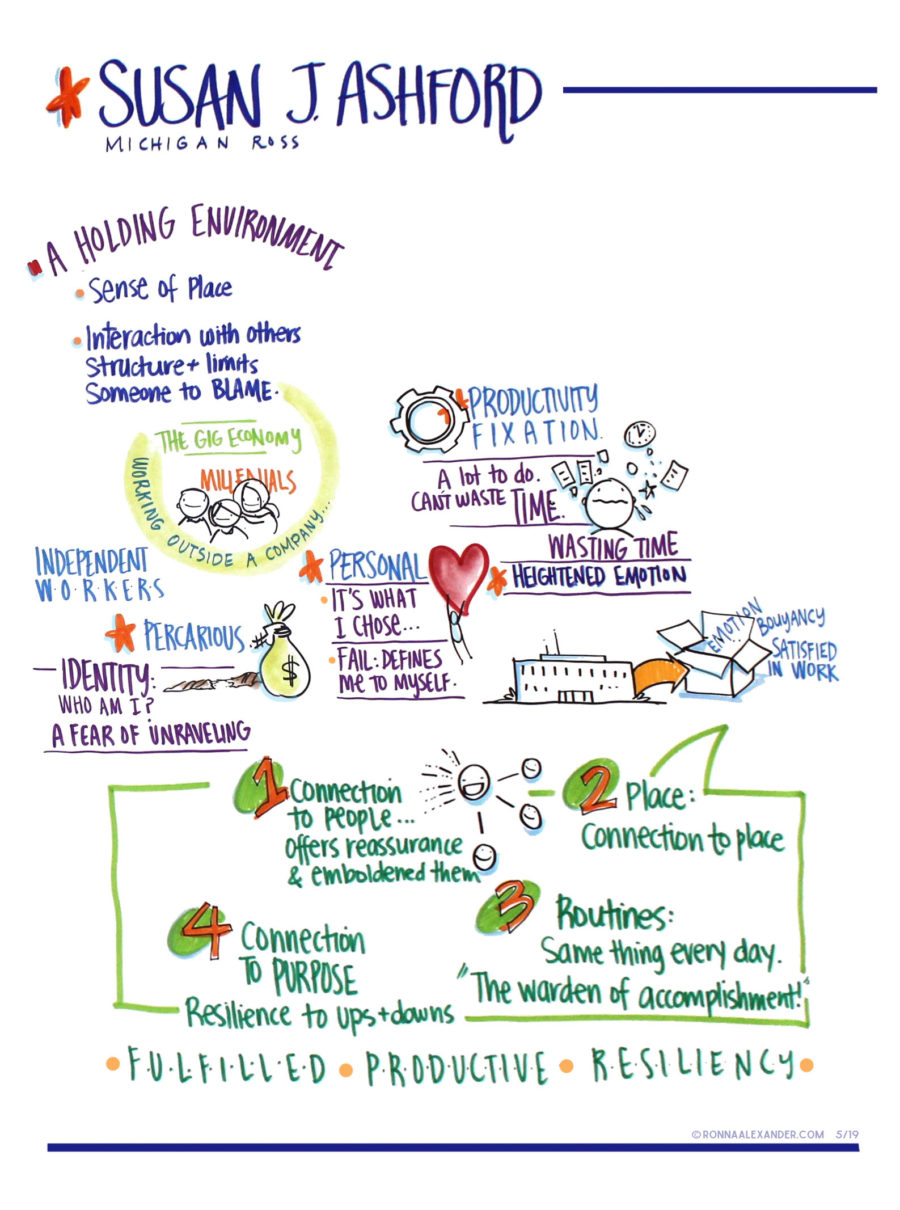 SUSAN J. ASHFORD
MICHIGAN ROSS
A HOLDING ENVIRONMENT
Sense of Place
Interaction with others
Structure + limits
Someone to BLAME.
THE GIG ECONOMY
MILLENIALS
WORKING OUTSIDE A COMPANY...
PRODUCTIVITY
FIXATION.
A lot to do.
CAN'T WASTE TIME.
WASTING TIME
HEIGHTENED EMOTION
INDEPENDENT
W.O.R.K.E.R.S
PERCARIOUS.
$
IDENTITY:
WHO AM I?
A FEAR OF UNRAVELING
PERSONAL
IT'S WHAT
I CHOSE...
FAIL: DEFINES
ME TO MYSELF.
EMOTION
BOUYANCY
SATISFIED
IN WORK
1 Connection
to people...
offers reassurance
& emboldened them
2 Place:
Connection to place
3 Routines:
Same thing every day.
"The warden of accomplishment!"
4 Connection
TO PURPOSE
Resilience to ups + downs
F.U.L.F.I.L.L.E.D • P.R.O.D.U.C.T.I.V.E • R.E.S.I.L.I.E.N.C.Y
© RONNAALEXANDER.COM 5/19